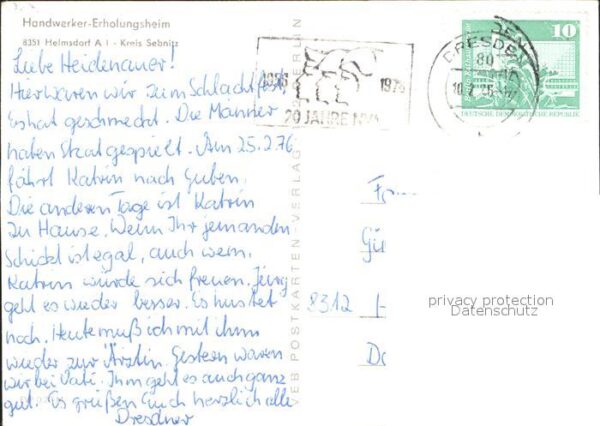 Handwerker-Erholungsheim
8351 Helmsdorf A 1 - Kreis Sebnitz
Liebe Heidenauer!
Hier waren wir zum Schlachtfest.
Es hat geschmeckt. Die Männer
haben Skat gespielt. Am 25.2.76
fährt Katrin nach Guben.
Die anderen Tage ist Katrin
zu Hause. Wenn Ihr jemanden
Schickt ist egal, auch wem.
Katrin würde sich freuen. Jörg
geht es wieder besser. Er hustet
noch. Heute muß ich mit ihm
wieder zur Ärztin. Gestern waren
wir bei Vati. Ihm geht es auch ganz
gut. Es grüßen Euch herzlich alle
Dresdner
VEB POSTKARTEN-VERLAG BERLIN
1956 1976
20 JAHRE NVA
DRESDEN
80
10
DEUTSCHE DEMOKRATISCHE REPUBLIK
8312
privacy protection
Datenschutz